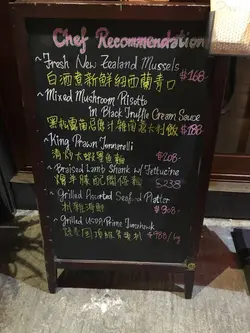 Chef Recommendation
~Fresh New Zealand Mussels
白酒煮新鮮紐西蘭青口 $168-
~Mixed Mushroom Risotto
in Black Truffle Cream Sauce
黑松露 忌廉汁雜菌意大利飯 $188
~King Prawn
清炒大蝦 $208-
~Braised Lamb Shank w/Fettucine
燴羊膝配闊條麵 $238
~Grilled Assorted Seafood Platter
扒雜海鮮 $308-
~Grilled USDA Prime Tomahawk
美國頂級 扒 $980/kg